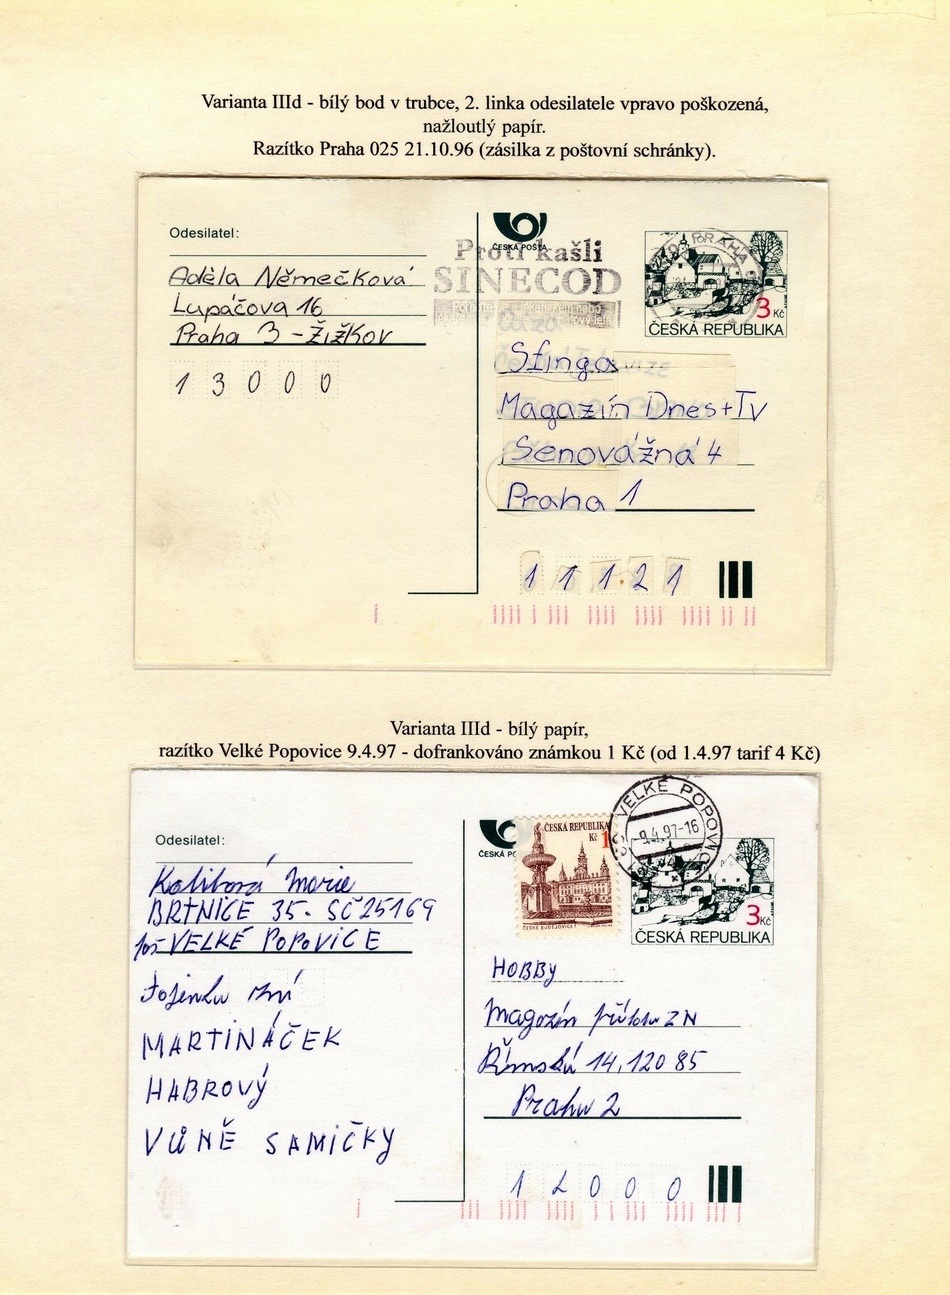 Varianta IIId - bílý bod v trubce, 2. linka odesilatele vpravo poškozená,
nažloutlý papír.
Razítko Praha 025 21.10.96 (zásilka z poštovní schránky).
Odesilatel:
Adéla Němečková
Lupáčova 16
Praha 3 - Žižkov
1 3 0 0 0
ČESKÁ POŠTA
Proti kašli
SINECOD
PRAHA
3 Kč
ČESKÁ REPUBLIKA
Sfinga
Magazín Dnes+TV
Senovážná 4
Praha 1
1 1 1 2 1
Varianta IIId - bílý papír,
razítko Velké Popovice 9.4.97 - dofrankováno známkou 1 Kč (od 1.4.97 tarif 4 Kč)
Odesilatel:
Kalibová Marie
BRTNICE 35. SČ 25169
VELKÉ POPOVICE
MARTINÁČEK
HABROVÝ
VŮNĚ SAMIČKY
ČESKÁ PO
ČESKÁ REPUBLIKA
Kč 1
ČESKÉ BUDĚJOVICE
VELKÉ POPOVICE
-9.4.97-16
3 Kč
ČESKÁ REPUBLIKA
HOBBY
Magazín ZN
Římská 14, 120 85
Praha 2
1 2 0 0 0